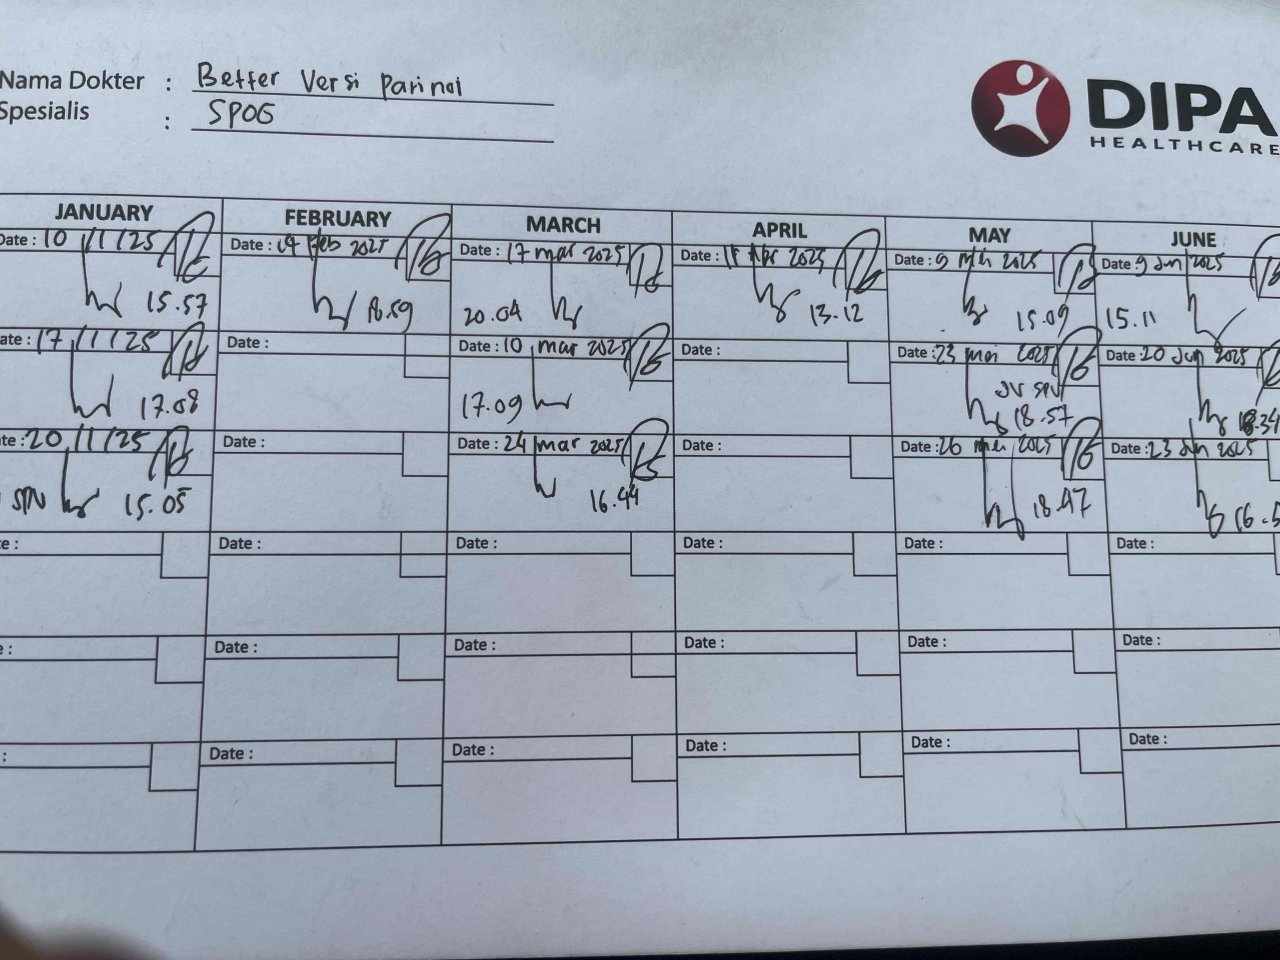 Nama Dokter : Better Versi Parinoi
Spesialis : SPOG
DIPA
HEALTHCARE
JANUARY FEBRUARY MARCH APRIL MAY JUNE
Date : 10 /1 /25 Date : 14 Feb 2025 Date : 17 mar 2025 Date : 11 Apr 2025 Date : 9 mei 2025 Date : 9 Jun 2025
15.57 18.59 20.04 13.12 15.09 15.11
ate : 17 /1 /25 Date : Date : 10 mar 2025 Date : Date : 23 mei 2025 Date : 20 Jun 2025
17.08 17.09 JV SPV 18.57 18.34
te : 20 /1 /25 Date : Date : 24 mar 2025 Date : Date : 26 mei 2025 Date : 23 Jun 2025
SPV 15.05 16.44 18.47 16.5
e : Date : Date : Date : Date : Date :
e : Date : Date : Date : Date : Date :
: Date : Date : Date : Date : Date :